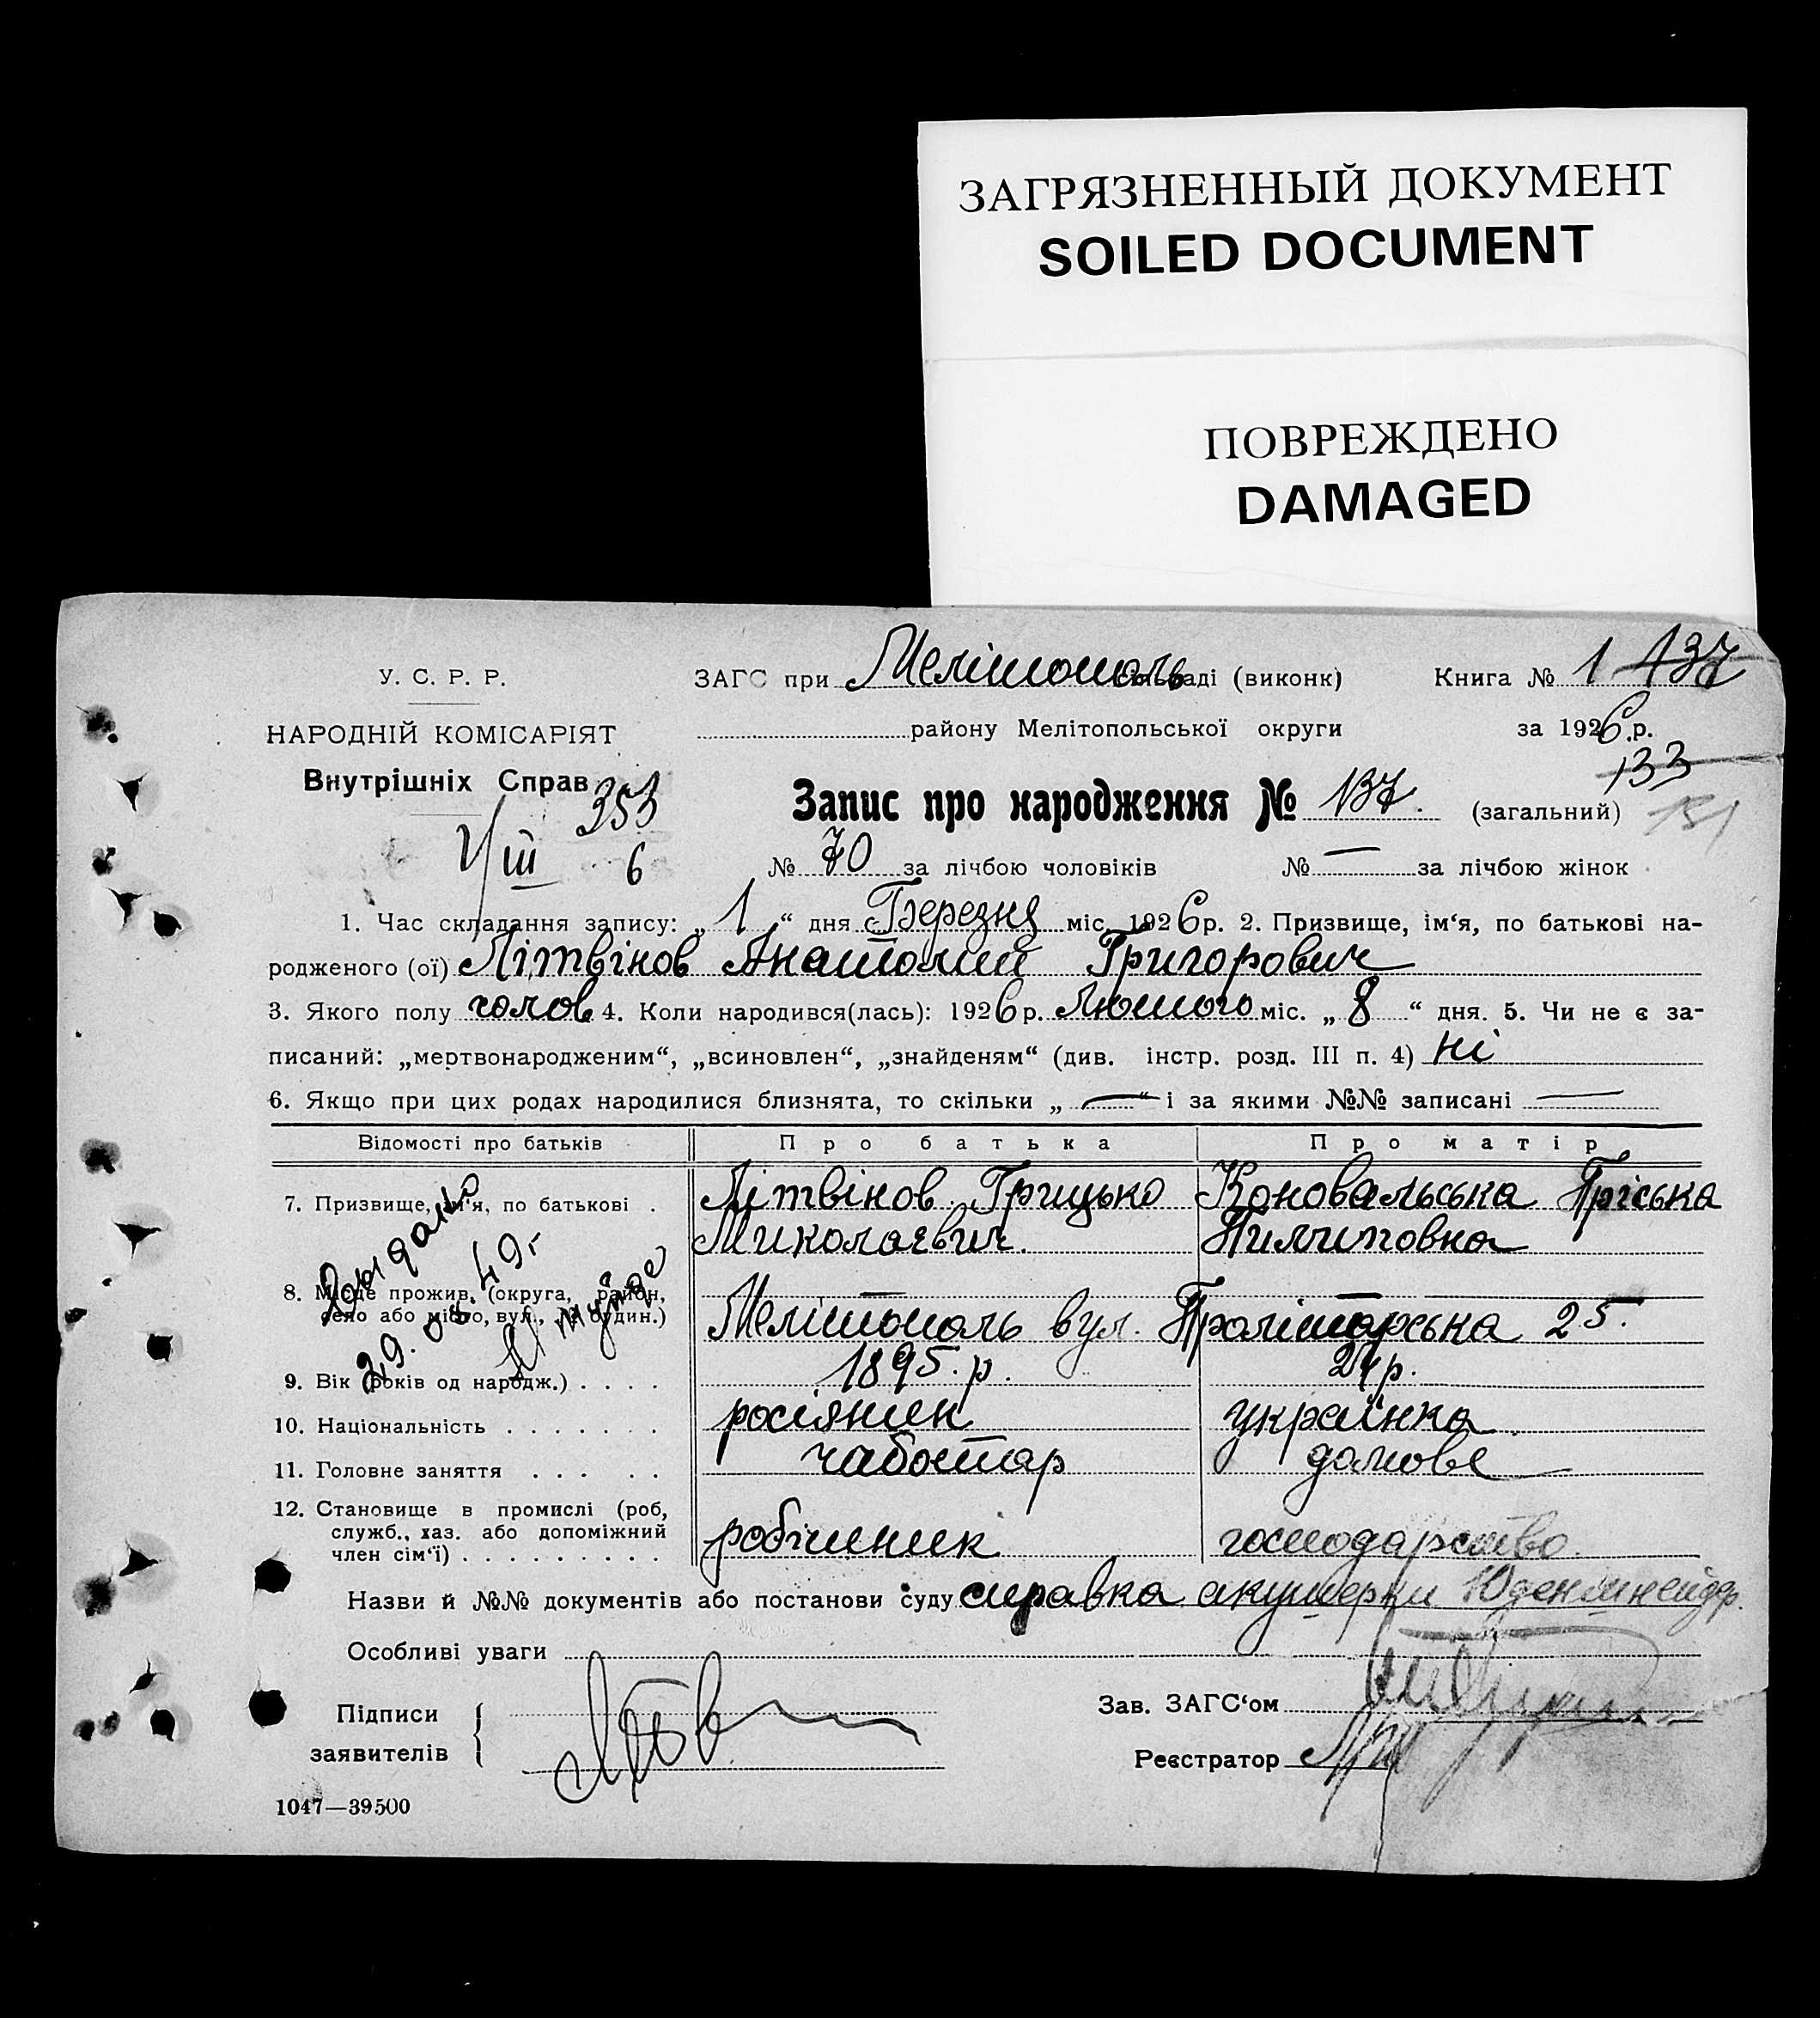 ЗАГРЯЗНЕННЫЙ ДОКУМЕНТ
SOILED DOCUMENT
ПОВРЕЖДЕНО
DAMAGED
У. С. Р. Р.
НАРОДНІЙ КОМІСАРІЯТ
Внутрішніх Справ
353
6
ЗАГС при Мелітополь сільраді (виконк)
району Мелітопольської округи
Книга № 1 137
за 1926 р.
133
151
Запис про народження № 137. (загальний)
№ 70 за лічбою чоловіків № — за лічбою жінок
1. Час складання запису: „ 1 “ дня Березня міс. 1926 р. 2. Призвище, ім‘я, по батькові на-
родженого (ої) Літвінов Анатолий Григорович
3. Якого полу чолов. 4. Коли народився(лась): 1926 р. Лютого міс. „ 8 “ дня. 5. Чи не є за-
писаний: „мертвонародженим“, „всиновлен“, „знайденям“ (див. інстр. розд. III п. 4) ні
6. Якщо при цих родах народилися близнята, то скільки „ — “ і за якими №№ записані —
Відомості про батьків Про батька Про матір
7. Призвище, ім‘я, по батькові . Літвінов Грицько Коновальська Пріська
Миколаєвич. Пилиповна
8. Місце прожив. (округа, район,
село або місто, вул., № будин.) Мелітополь вул. Пролітарська 25.
29.
49
9. Вік (років од народж.) . . . . 1895. р. 24 р.
10. Національність . . . . . . . росіяник українка
11. Головне заняття . . . . . чаботар домове
12. Становище в промислі (роб,
служб., хаз. або допоміжний
член сім‘ї) . . . . . . . . . робітник господарство.
Назви й №№ документів або постанови суду справка акушерки
Особливі уваги
Підписи
заявителів
Зав. ЗАГС‘ом
Реєстратор
1047—39500